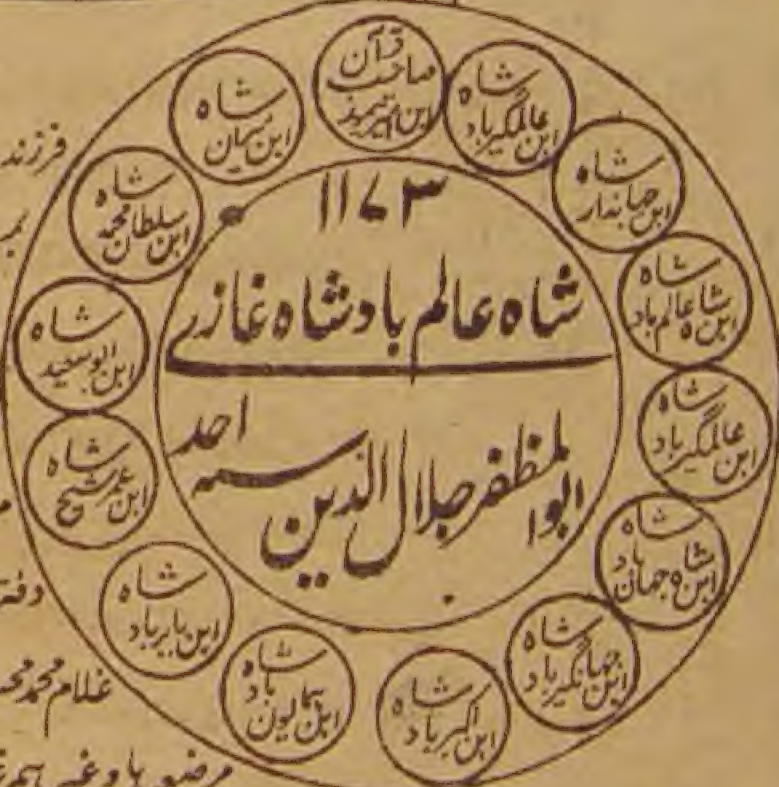 ۱۱۷۳
شاہ عالم بادشاہ غازی
احد
ابوالمظفر جلال الدین سنہ
قرآن
صاحب
ابن امیر تیمور
شاہ
ابن عالمگیر باد
شاہ
ابن جہاندار
شاہ
ابن شاہ عالم باد
شاہ
ابن عالمگیر باد
شاہ
ابن شاہ جہان باد
شاہ
ابن جہانگیر باد
شاہ
ابن اکبر باد
شاہ
باد
ابن ہمایون
شاہ
ابن بابر باد
شاہ
ابن عمر شیخ
شاہ
ابن ابو سعید
شاہ
ابن سلطان محمد
شاہ
ابن میران
فرزند
غلام محمد